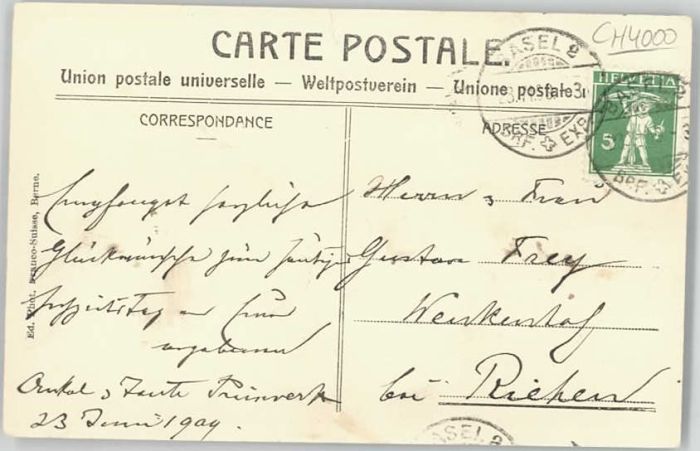 CH4000
CARTE POSTALE.
Union postale universelle — Weltpostverein — Unione postale
BASEL 2
BRF. EXP.
HELVETIA
5
CORRESPONDANCE
ADRESSE
Empfanget herzliche
Glückwünsche zum heutigen
Hochzeitstag von Euren
ergebenen
Onkel & Tante
23 Juni 1909
Herrn & Frau
Gustav Frey
Wenkenhof
bei Riehen
Ed. Phot. Franco-Suisse, Berne.
BASEL 2